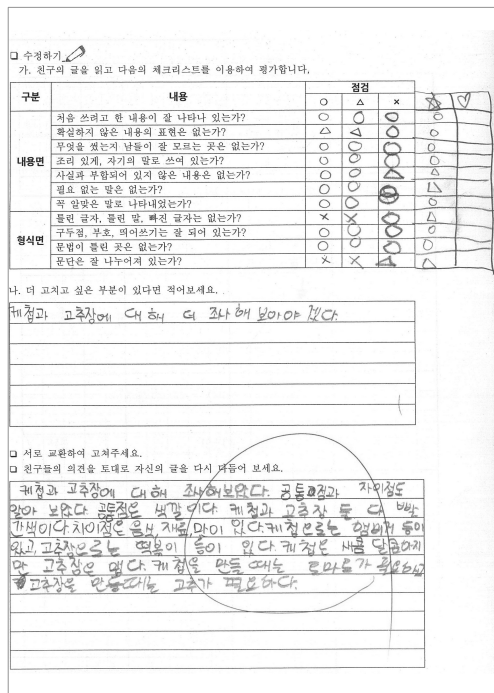 □ 수정하기
가. 친구의 글을 읽고 다음의 체크리스트를 이용하여 평가합니다.
구분 내용 점검
○ △ × ☆ ♡
내용면
처음 쓰려고 한 내용이 잘 나타나 있는가? ○ ○ ○ ○
확실하지 않은 내용의 표현은 없는가? △ △ ○ ○
무엇을 썼는지 남들이 잘 모르는 곳은 없는가? ○ ○ ○ ○
조리 있게, 자기의 말로 쓰여 있는가? ○ ○ ○ ○
사실과 부합되어 있지 않은 내용은 없는가? ○ ○ △ △
필요 없는 말은 없는가? ○ ○
꼭 알맞은 말로 나타내었는가? ○ ○ ○ ○
형식면
틀린 글자, 틀린 말, 빠진 글자는 없는가? × × ○ △
구두점, 부호, 띄어쓰기는 잘 되어 있는가? ○ ○ ○ ○
문법이 틀린 곳은 없는가? ○ ○ ○ ○
문단은 잘 나누어져 있는가? × × △ ○
나. 더 고치고 싶은 부분이 있다면 적어보세요.
케첩과 고추장에 대해 더 조사해 보아야 겠다.
□ 서로 교환하여 고쳐주세요.
□ 친구들의 의견을 토대로 자신의 글을 다시 다듬어 보세요.
케첩과 고추장에 대해 조사해보았다. 공통점과 차이점도
알아 보았다. 공통점은 색깔이다. 케첩과 고추장 둘 다 빨
간색이다 차이점은 음식, 재료, 맛이 있다. 케첩으로는 햄버거 등이
있고, 고추장으로는 떡볶이 등이 있다. 케첩은 새콤 달콤하지
만 고추장은 맵다. 케첩을 만들 때는 토마토가 필요하고
고추장을 만들때는 고추가 필요하다.